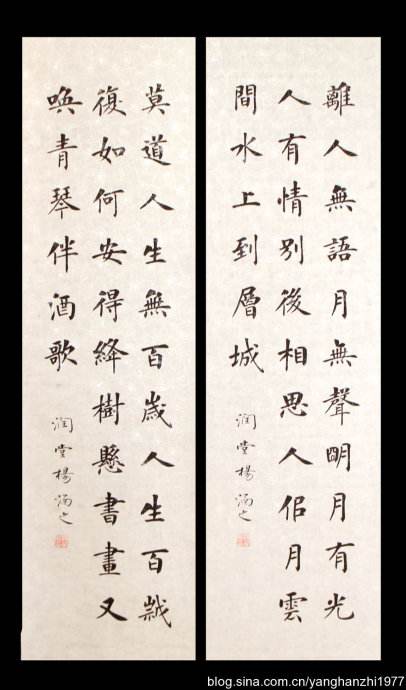 離人無語月無聲明月有光
人有情別後相思人佀月雲
間水上到層城
潤堂楊涵之
莫道人生無百歲人生百歲
復如何安得絳樹懸書畫又
喚青琴伴酒歌
潤堂楊涵之
blog.sina.com.cn/yanghanzhi1977